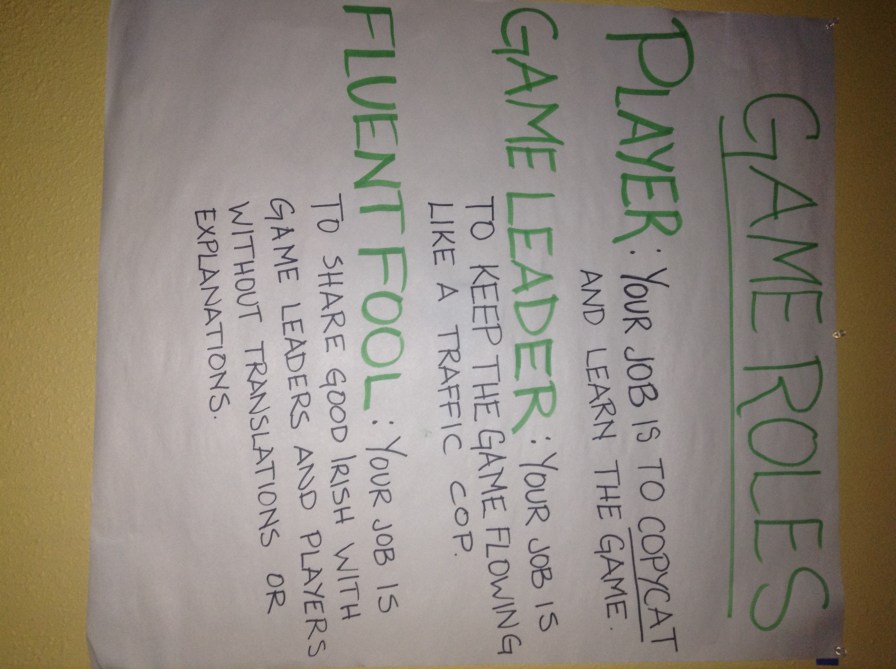 GAME ROLES
PLAYER: YOUR JOB IS TO COPYCAT
AND LEARN THE GAME.
GAME LEADER: YOUR JOB IS
TO KEEP THE GAME FLOWING
LIKE A TRAFFIC COP.
FLUENT FOOL: YOUR JOB IS
TO SHARE GOOD IRISH WITH
GAME LEADERS AND PLAYERS
WITHOUT TRANSLATIONS OR
EXPLANATIONS.